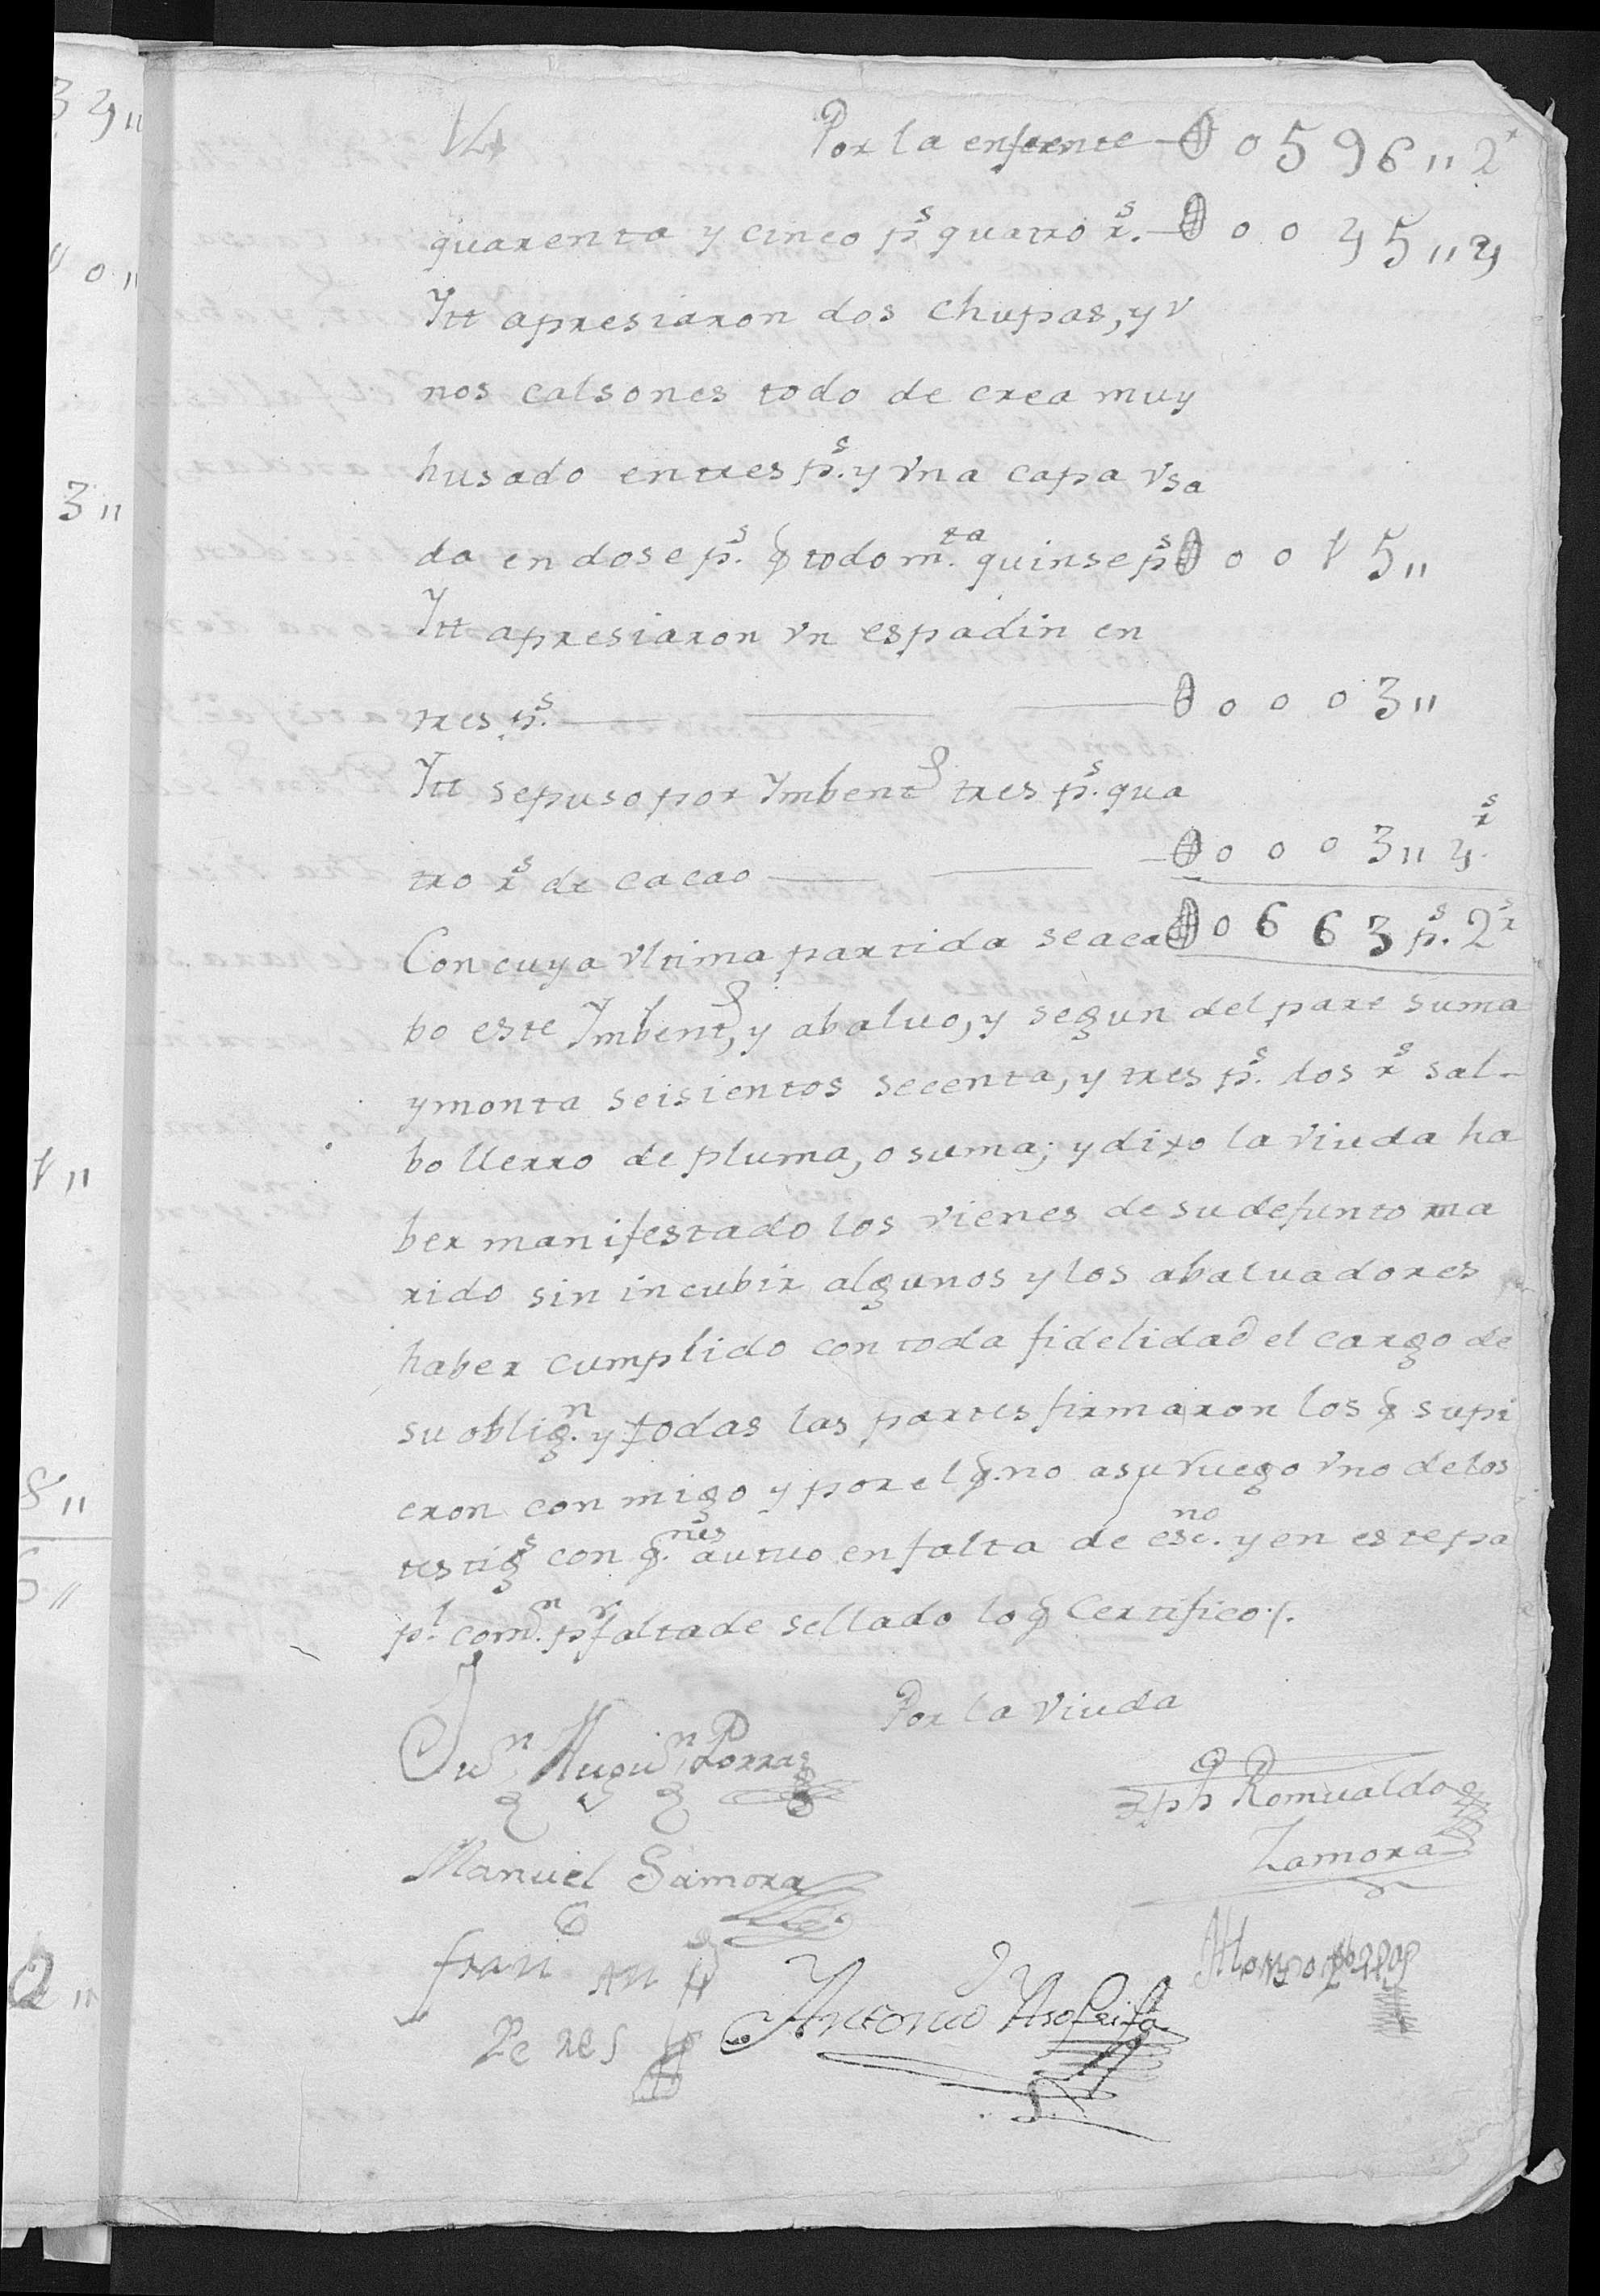 Por la enfrente — 0596 " 2
quarenta y cinco p.s quatro r.s — 0045 " 4
Ytt apresiaron dos chupas, y v
nos calsones todo de crea muy
husado en tres p.s y vna capa vsa
da en dose p.s q todo m.ta quinse p.s 0015 "
Ytt apresiaron vn espadin en
tres p.s — 0003 "
Ytt se puso por Ymbent.o tres p.s qua
tro r.s de cacao — 0003 " 4 r.s
Con cuya vltima partida se aca 0663 p.s 2 r.s
bo este Ymbent.o, y abaluo, y segun del pare suma
y monta seisientos secenta, y tres p.s dos r.s sal-
bo llerro de pluma, o suma; y dixo la viuda ha
ber manifestado los vienes de su defunto ma
rido sin incubir algunos y los abaluadores
haber cumplido con toda fidelidad el cargo de
su oblig.n y todas las partes firmaron los q supi
eron con migo y por el q. no a su ruego vno de los
testig.s con q.nes autuo en falta de esc.no y en este pa
p.l com.n p.r falta de sellado lo q Certifico /.
Por la Viuda
Ju.n Porras
Jph Romualdo
Zamora
Manuel Samora
Fran.co
Peres
Antonio Asofeifa
Alonso